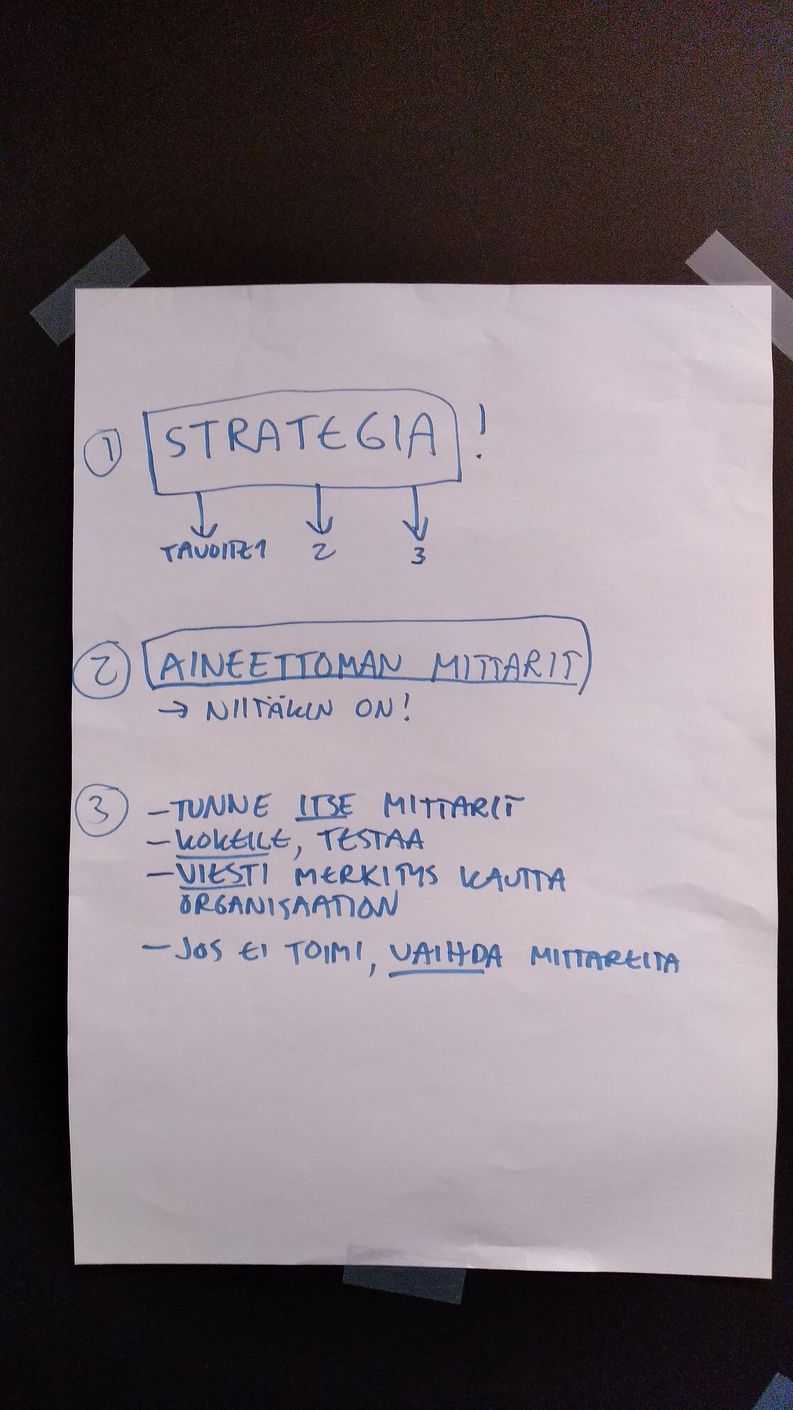 1 STRATEGIA !
TAVOITE1 2 3
2 AINEETTOMAN MITTARIT
→ NIITÄKIN ON!
3 – TUNNE ITSE MITTARIT
– KOKEILE, TESTAA
– VIESTI MERKITYS KAUTTA
ORGANISAATION
– JOS EI TOIMI, VAIHDA MITTAREITA